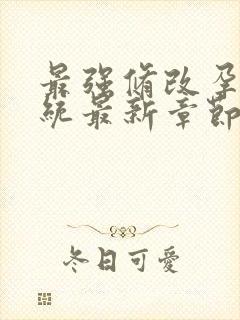 最强脩改孕
統最新章節
冬日可愛